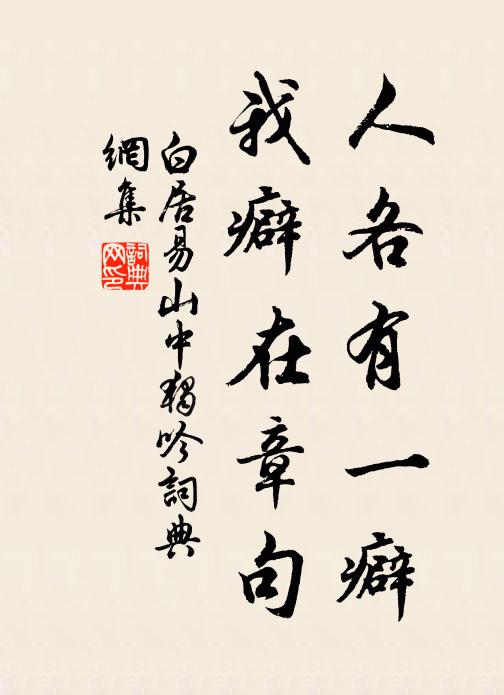 人各有一癖
我癖在章句
白居易山中獨吟詞典
網集
詞典網印